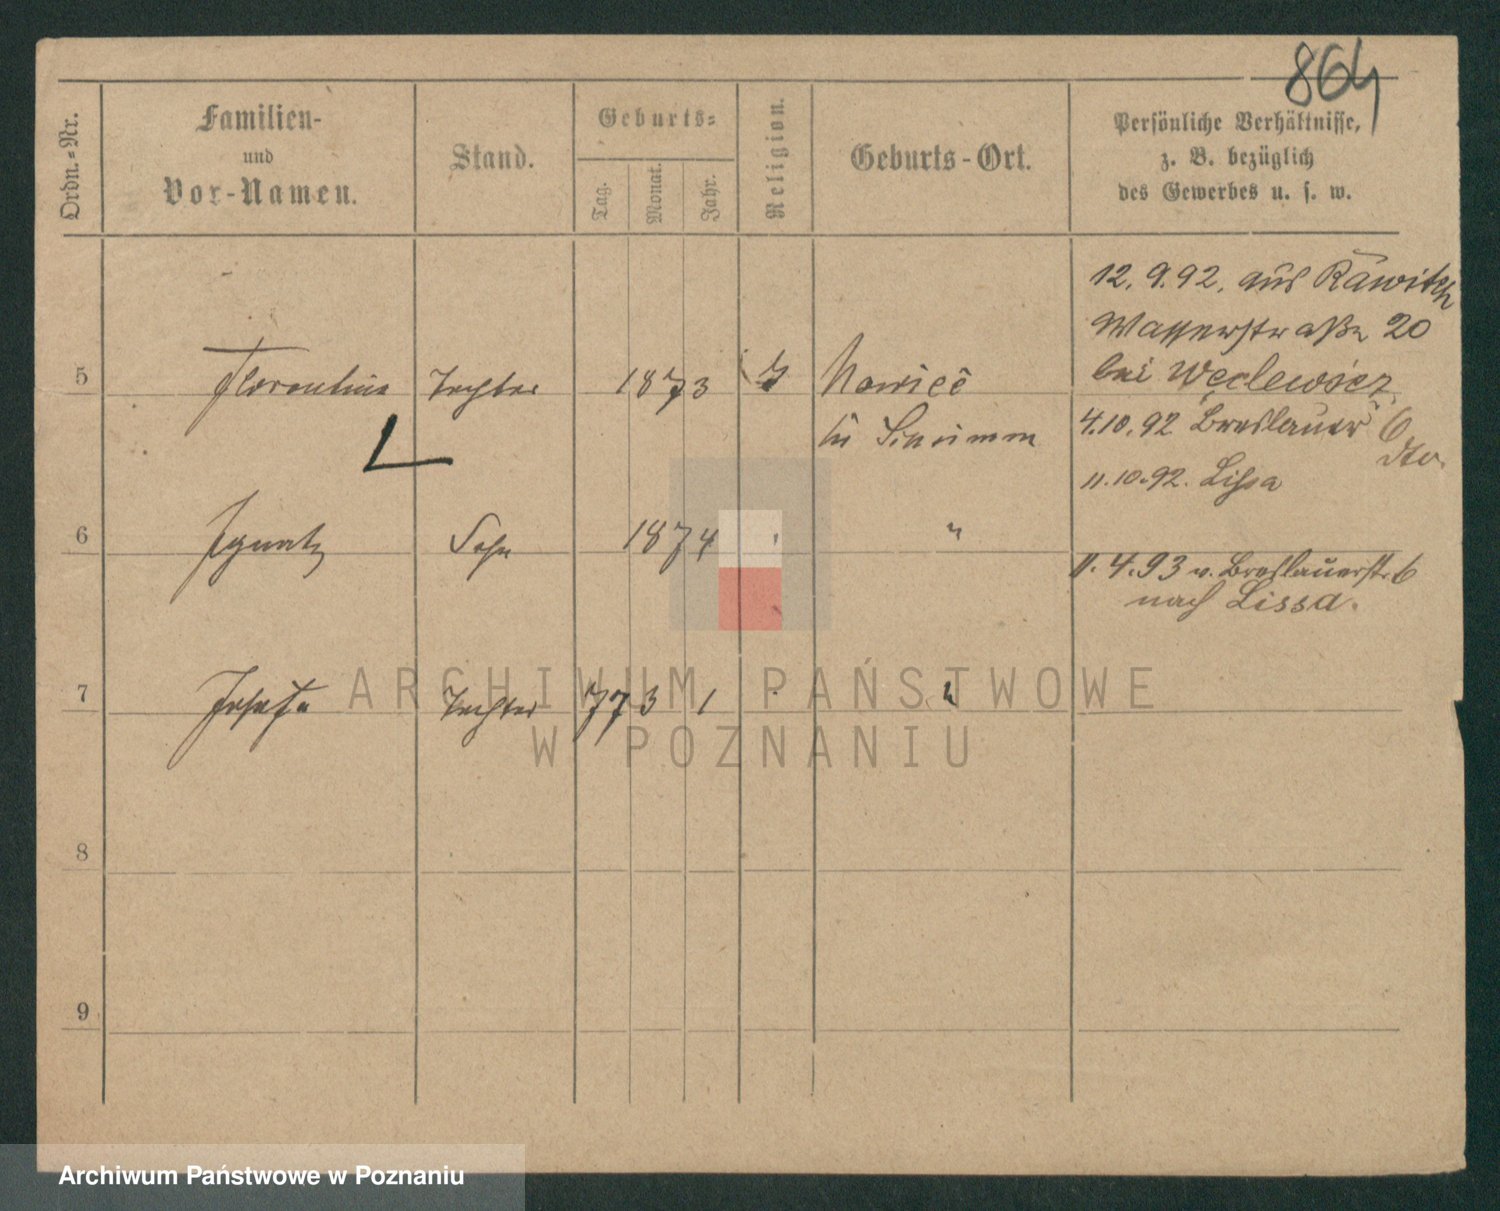 864
Ordn.=Nr.
Familien-
und
Vor-Namen.
Stand.
Geburts=
Tag.
Monat.
Jahr.
Religion.
Geburts-Ort.
Persönliche Verhältnisse,
z. B. bezüglich
des Gewerbes u. s. w.
12. 9. 92. aus Rawitsch
Wasserstraße 20
bei Węclewicz
5 Florentine Tochter 1873
in
4.10.92 Breslauer 6
dto.
11.10.92. Lissa
6 Ignatz Sohn 1874 "
11.4.93 v. Breslauerstr 6
nach Lissa.
7 Josefa Tochter 7 73 1 "
8
9
ARCHIWUM PAŃSTWOWE
W POZNANIU
Archiwum Państwowe w Poznaniu